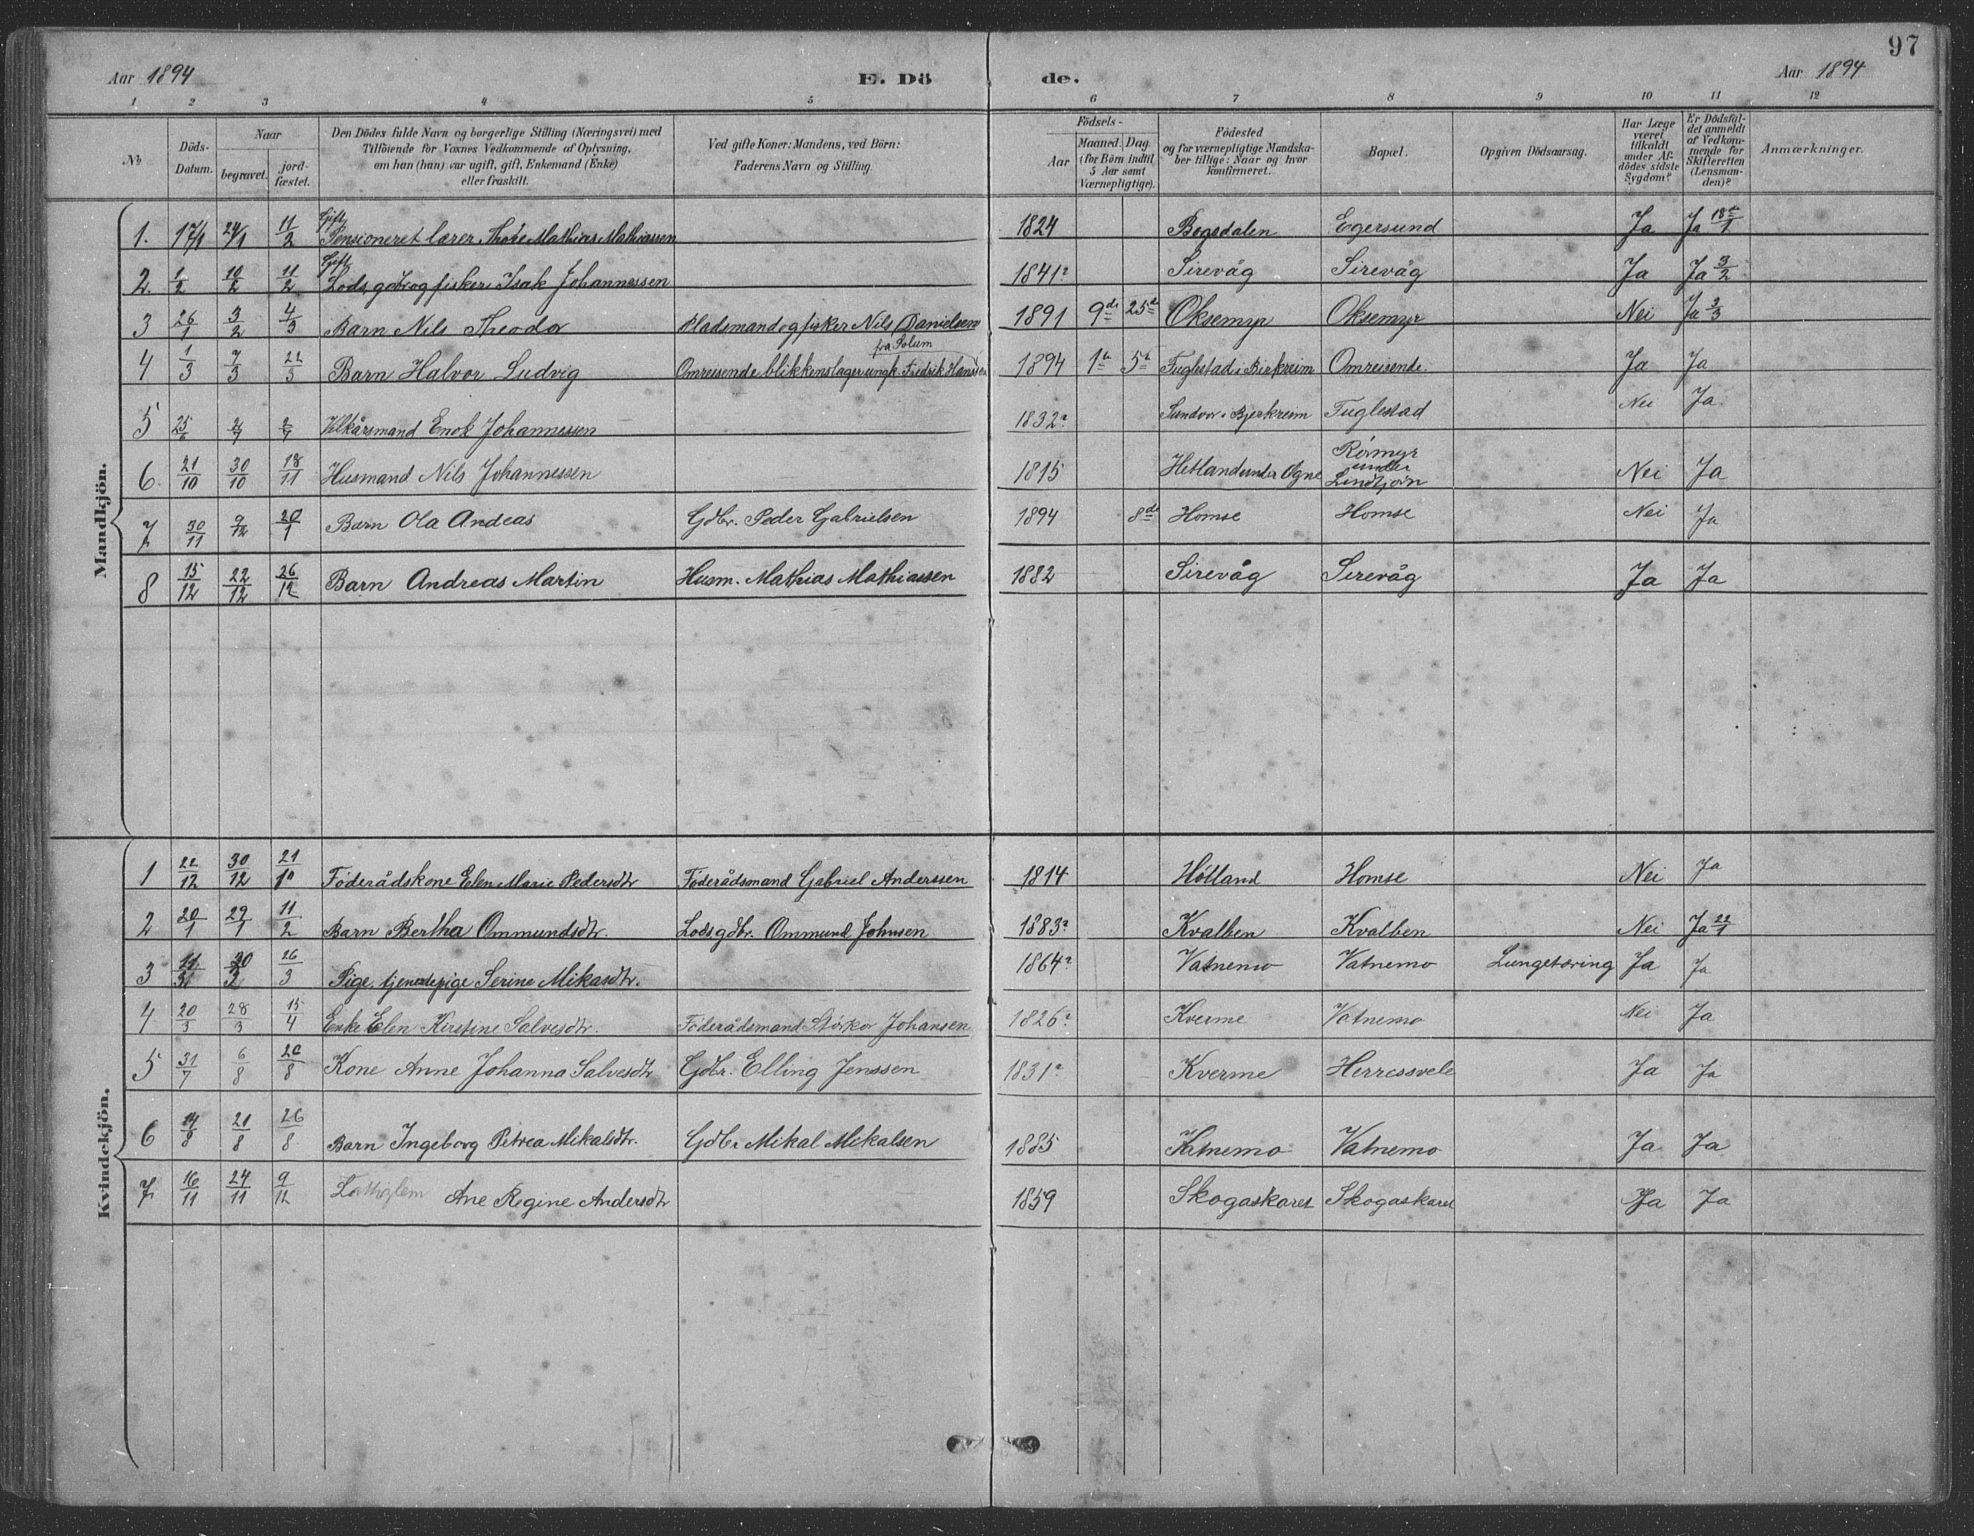 97
Aar 1894 E. Dö de. Aar 1894
1 2 3 4 5 6 7 8 9 10 11 12
No Döds-Datum. Naar begravet. jord-fæstet. Den Dödes fulde Navn og borgerlige Stilling (Næringsvei) med Tilföiende for Voxnes Vedkommende af Oplysning, om han (hun) var ugift, gift, Enkemand (Enke) eller fraskilt. Ved gifte Koner: Mandens, ved Börn: Faderens Navn og Stilling. Födsels- Aar Maaned. Dag. (for Börn indtil 5 Aar samt Værnepligtige). Födested og for værnepligtige Mandskaber tillige: Naar og hvor konfirmeret. Bopæl. Opgiven Dödsaarsag. Har Læge været tilkaldt under Afdödes sidste Sygdom? Er Dödsfaldet anmeldt af Vedkommende for Skifteretten (Lensmanden)? Anmærkninger.
Mandkjön.
1. 17/1 24/1 11/2 Gift Pensioneret lærer Mathias Mathiassen 1824 Bogsdalen Egersund Ja Ja 18de/1
2. 1/2 10/2 11/2 Gift Lods, gdbr og fisker Isak Johannessen 1841 Sirevåg Sirevåg Ja Ja 3/2
3 26/1 3/2 4/3 Barn Nils Theodor Pladsmand og fisker Nils Danielsen 1891 9de 25de Oksemyr Oksemyr Nei Ja 2/3
4 1/3 7/3 22/3 Barn Halvor Ludvig Omreisende blikkenslager ungk. Fredrik Hanssen fra Solum 1894 1ste 5te Fuglestad i Birkreim Omreisende. Ja Ja
5 25/6 2/7 2/7 Vilkårsmand Enok Johannessen 1832 Sundvor i Bjerkreim Fuglestad Nei Ja
6. 21/10 30/10 18/11 Husmand Nils Johannessen 1815 Hetland under Ogne Rörmyr under Lindtjörn Nei Ja
7 30/11 9/12 20/1 Barn Ola Andeas Gdbr. Peder Gabrielsen 1894 8de Homse Homse Nei Ja
8 15/12 22/12 26/12 Barn Andreas Martin Husm. Mathias Mathiassen 1882 Sirevåg Sirevåg Ja Ja
Kvindekjön.
1 22/12 30/12 21/10 Föderådskone Elen Marie Pedersdtr Föderådsmand Gabriel Anderssen 1814 Hölland Homse Nei Ja
2 20/1 29/1 11/2 Barn Bertha Ommundsdtr. Lods gdbr. Ommund Johnsen 1883 Kvalben Kvalben Nei Ja 22/1
3 11/3 20/3 26/3 Pige, tjenestepige Serine Mikasdtr. 1864 Vatnemo Vatnemo Lungetæring Ja Ja
4 20/3 28/3 15/4 Enke Elen Kirstine Salvesdtr. Föderådsmand Störkor Johansen 1826 Kverme Vatnemo Nei Ja
5 31/7 6/8 26/8 Kone Anne Johanna Salvesdtr Gdbr. Elling Jenssen 1831 Kverme Herressvele Ja Ja
6 14/8 21/8 26/8 Barn Ingeborg Petrea Mikalsdtr. Gdbr Mikal Mikalsen 1885 Vatnemo Vatnemo Ja Ja
7. 16/11 24/11 9/12 Ane Regine Andersdtr 1859 Skogaskaret Skogaskaret Ja Ja